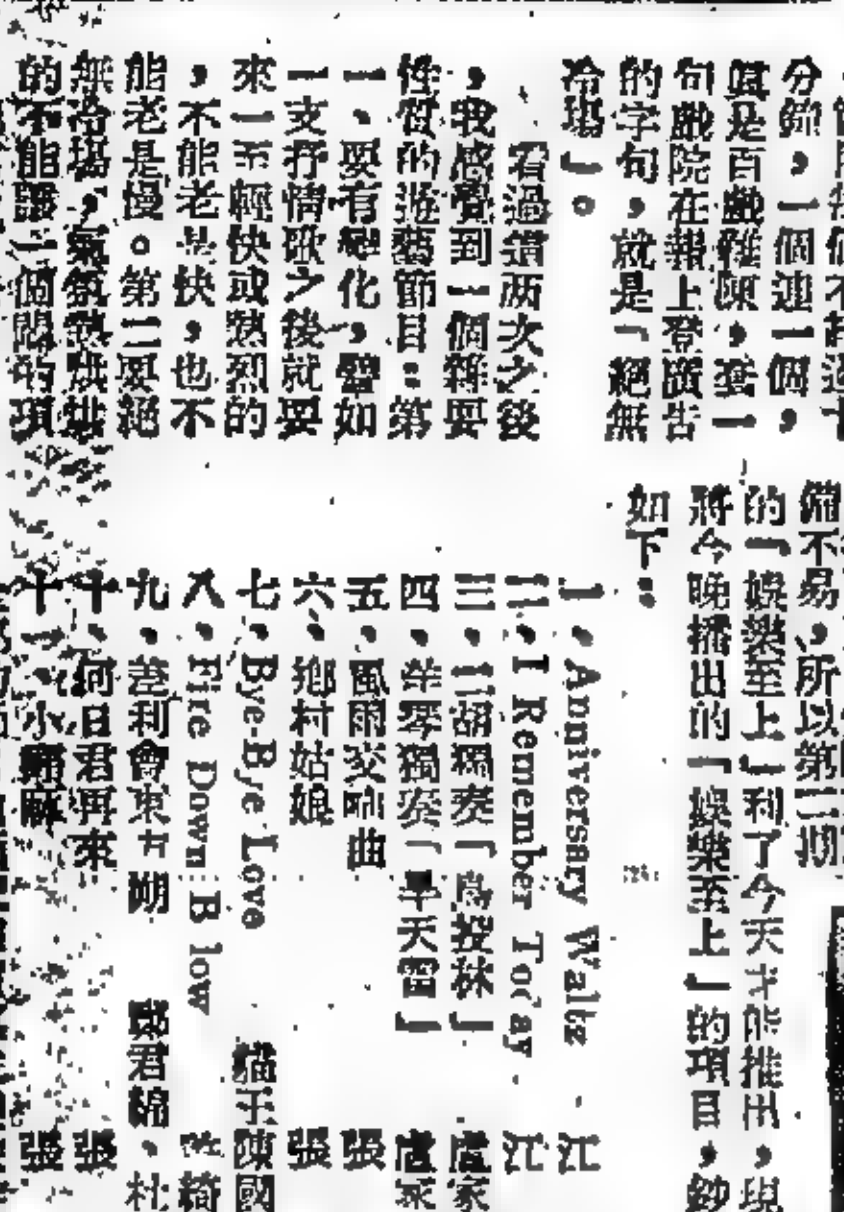 分節，一個連一個，
眞是百戲雜陳，套一
句戲院在報上登廣告
的字句，就是「絕無
冷塲」。
看過這两次之後
，我感覺到一個雜耍
性質的遊藝節目：第
一、要有變化，譬如
一支抒情歌之後就要
來一支輕快或熱烈的
，不能老是快，也不
能老是慢。第二要絕
無冷場，氣氛熱烘烘
的不能讓一個悶的項
備不易，所以第二期
的「娛樂至上」到了今天才能推出，現
將今晚播出的「娛樂至上」的項目，鈔
如下：
一。Anniversary Waltz 江
二。I Remember Today 江
三。二胡獨奏「鳥投林」 盧家
四。洋琴獨奏「旱天雷」 盧家
五。風雨交响曲 張
六。鄉村姑娘 張
七。Bye-Bye Love 貓王陳國
八。Fire Down B low 綺
九。差利會東方朔 鄭君綿。杜
十。何日君再來 張
十一 小 張